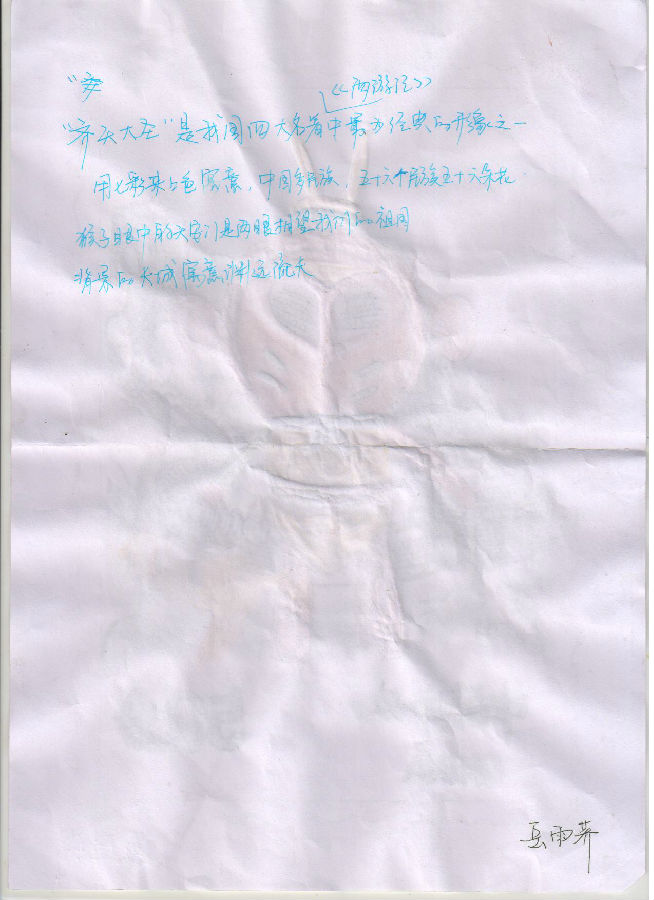 《西游记》
"齐天大圣"是我国四大名著中最为经典的形象之一
用七彩来上色寓意，中国多民族，五十六个民族五十六朵花
猴子眼中的天安门是两眼相望我们的祖国
背景的长城寓意渊远流长
岳雨荞